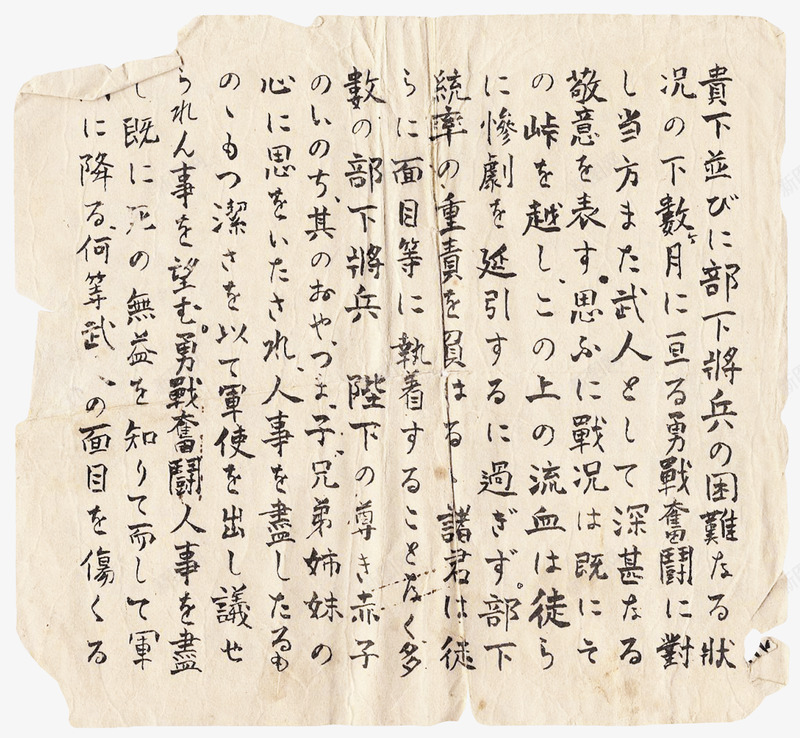 貴下並びに部下將兵の困難なる狀
況の下數ヶ月に亘る勇戰奮鬪に對
し当方また武人として深甚なる
敬意を表す。思ふに戰況は既にそ
の峠を越し、この上の流血は徒ら
に慘劇を延引するに過ぎず。部下
統率の重責を負はるゝ諸君は徒
らに面目等に執着することなく多
數の部下將兵 陛下の尊き赤子
のいのち、其のおや、つま、子、兄弟姉妹の
心に思をいたされ、人事を盡したるも
のゝもつ潔さを以て軍使を出し議せ
られん事を望む。勇戰奮鬪人事を盡
し既に の無益を知りて而して軍
に降る、何等武 の面目を傷くる